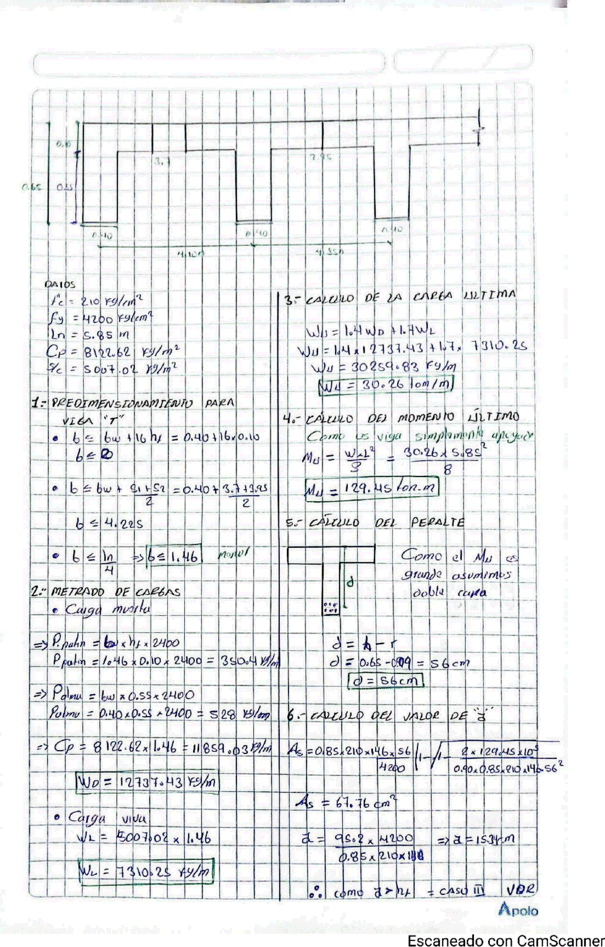 0.10
3.7
3.95
0.65
0.55
0.40
0.40
0.40
4.10m
4.35m
DATOS
f'c = 210 Kg/cm²
fy = 4200 Kg/cm²
Ln = 5.85 m
Cp = 8122.62 Kg/m²
s/c = 5007.02 Kg/m²
1.- PREDIMENSIONAMIENTO PARA
VIGA "T"
• b ≤ bw + 16 hf = 0.40 + 16x0.10
b ≤ 2
• b ≤ bw + (S1+S2)/2 = 0.40 + (3.7+3.95)/2
b ≤ 4.225
• b ≤ ln/4 ⇒ b ≤ 1.46 menor
2.- METRADO DE CARGAS
• Carga muerta
⇒ P.patin = b x hf x 2400
P patin = 1.46 x 0.10 x 2400 = 350.4 Kg/m
⇒ Palma = bw x 0.55 x 2400
Palma = 0.40 x 0.55 x 2400 = 528 Kg/m
⇒ Cp = 8122.62 x 1.46 = 11859.03 Kg/m
WD = 12737.43 Kg/m
• Carga viva
WL = 5007.02 x 1.46
WL = 7310.25 Kg/m
3.- CALCULO DE LA CARGA ULTIMA
WU = 1.4WD + 1.7WL
WU = 1.4 x 12737.43 + 1.7 x 7310.25
WU = 30259.83 Kg/m
WU = 30.26 ton/m
4.- CÁLCULO DEL MOMENTO ÚLTIMO
Como es viga simplemente apoyada
MU = WuL²/8 = 30.26 x 5.85²/8
MU = 129.45 ton.m
5.- CÁLCULO DEL PERALTE
d
Como el Mu es
grande asumimos
doble capa
d = h - r
d = 0.65 - 0.09 = 56 cm
d = 56cm
6.- CALCULO DEL VALOR DE "a"
As = 0.85x210x146x56/4200 (1-√1- 2x129.45x10⁵/0.90x0.85x210x146x56²
As = 67.76 cm²
a = 95.2 x 4200/0.85x210x ⇒ a = 15.34cm
∴ como a > hf = CASO III VDR
Apolo
Escaneado con CamScanner